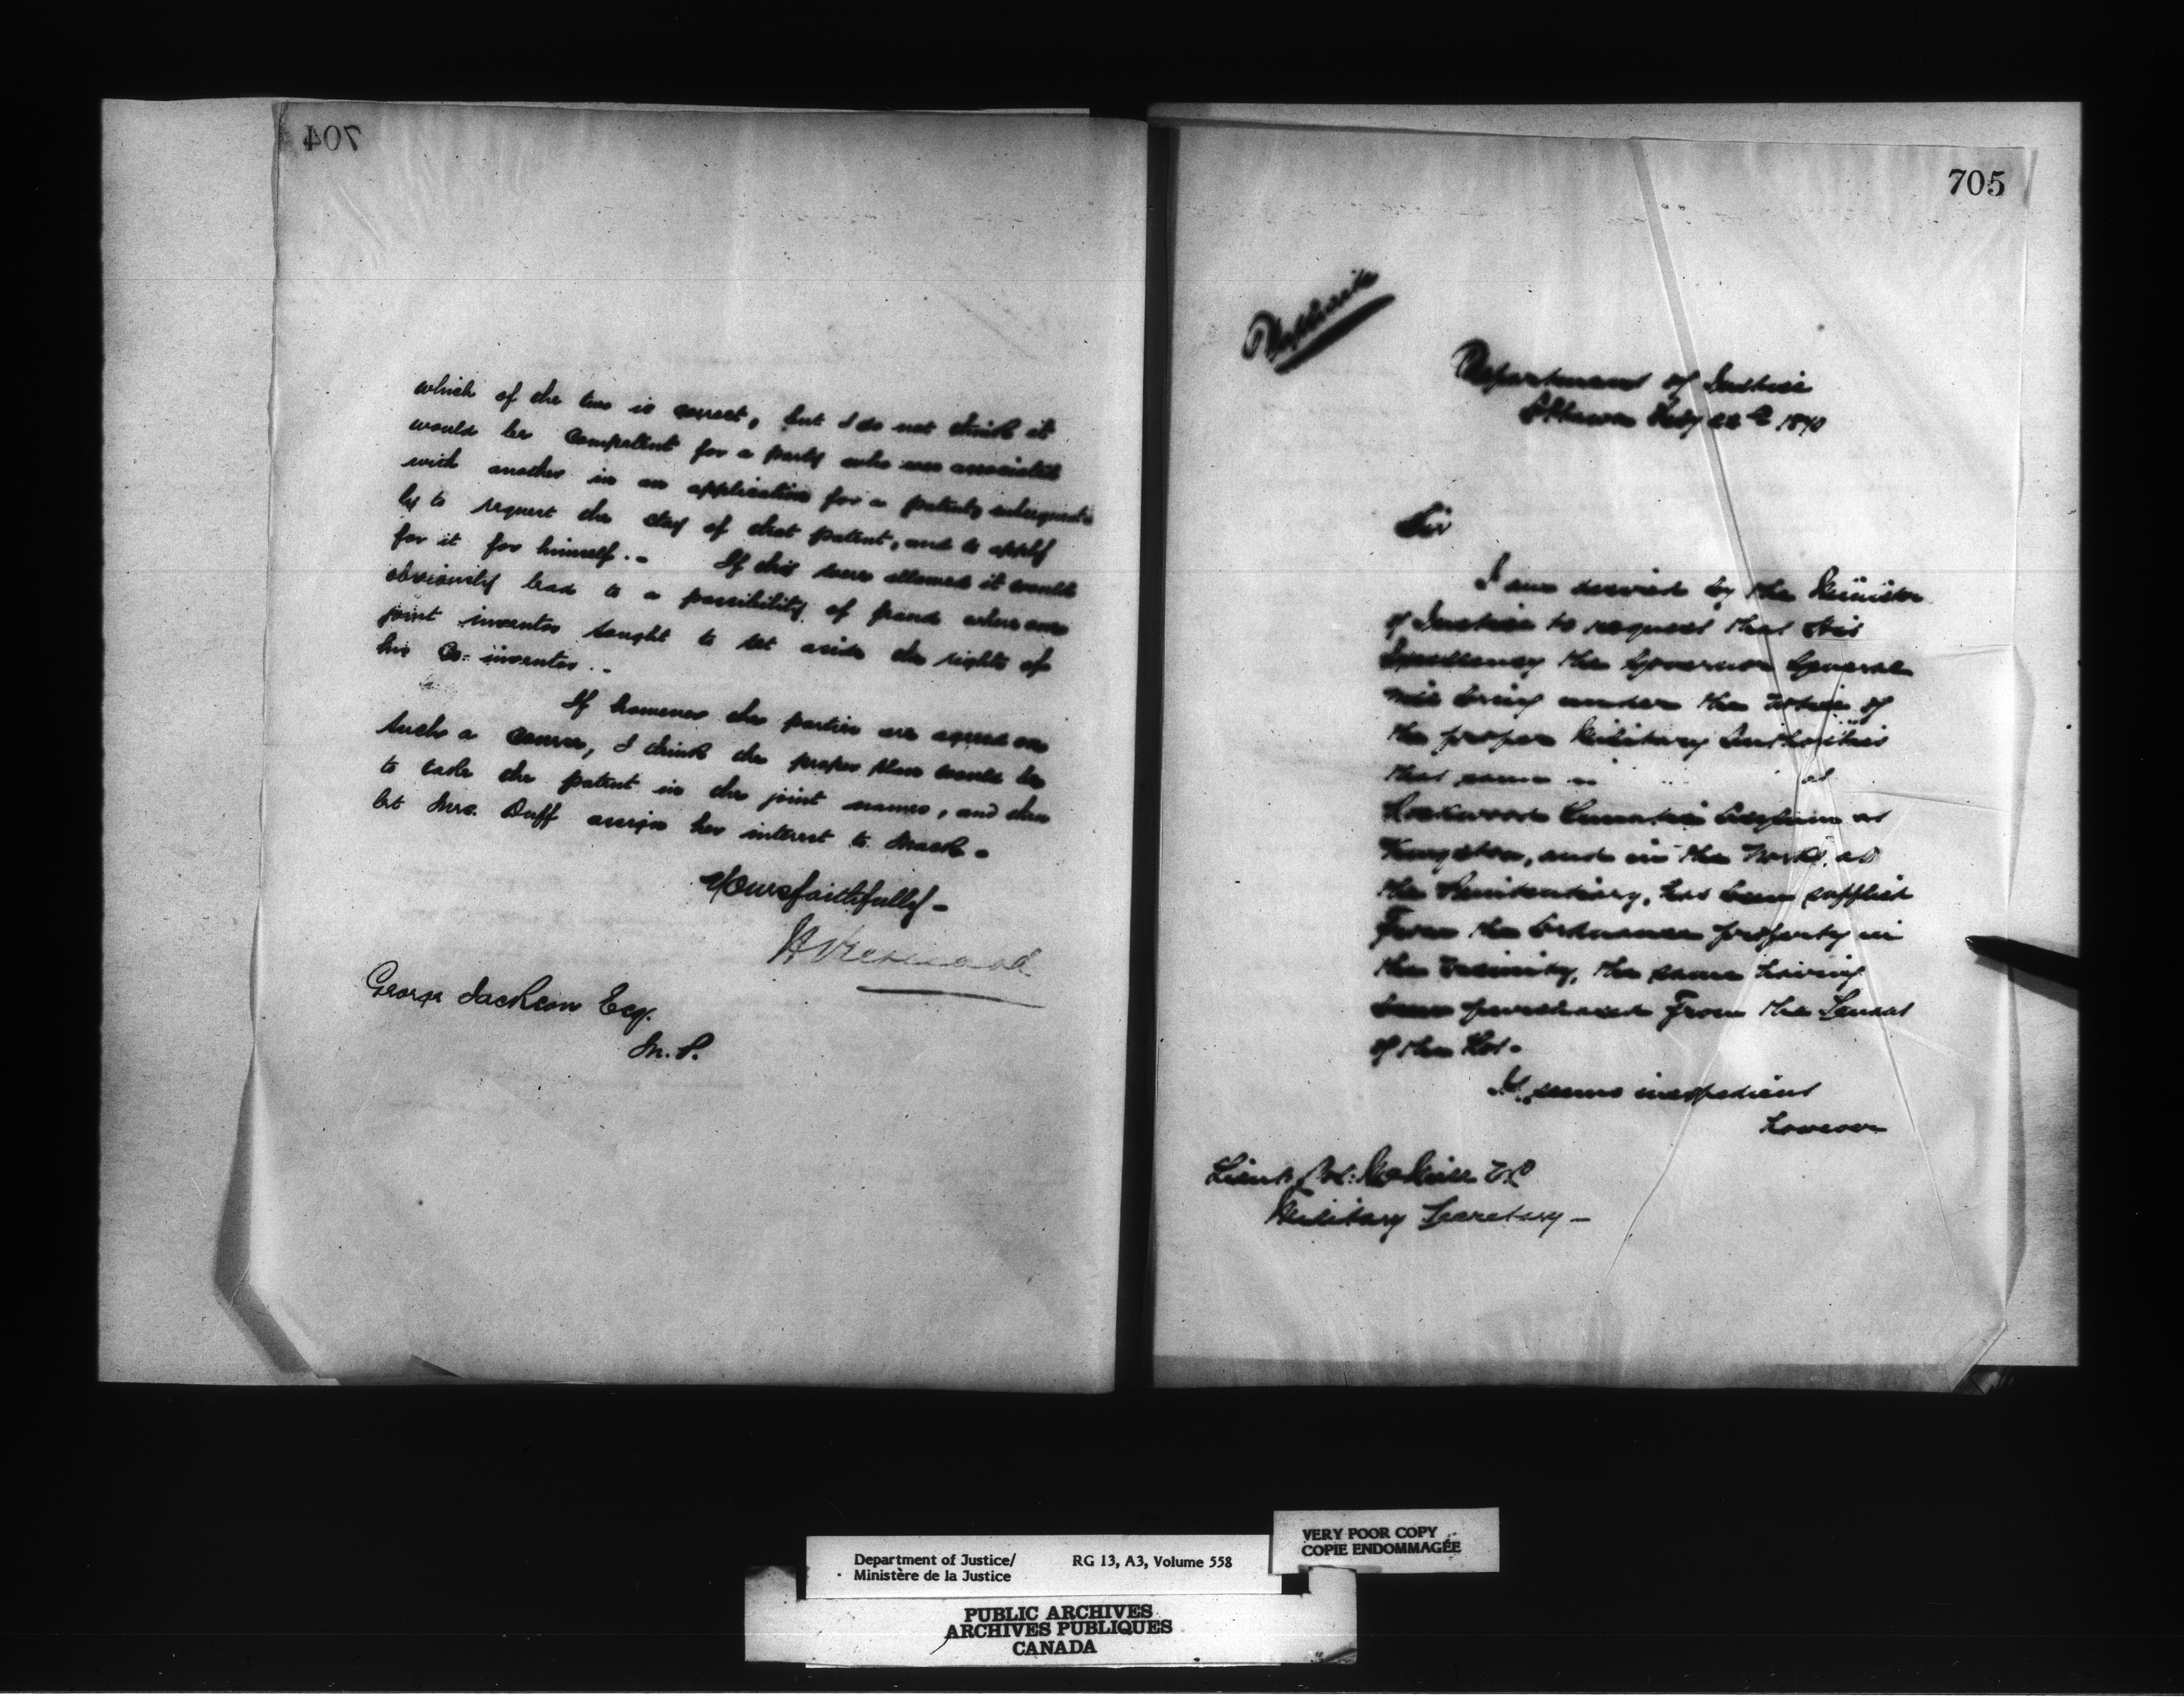 704
which of the two is correct, but I do not think it
would be competent for a party who was associated
with another in an application for a patent, subsequent-
ly to request the stay of that patent, and to apply
for it for himself. - If this were allowed it would
obviously lead to a possibility of fraud where one
joint inventor sought to set aside the rights of
his Co-inventor. -
If however the parties are agreed on
such a course, I think the proper plan would be
to take the patent in the joint names, and then
let Mrs. Duff assign her interest to Mack -
Yours faithfully -
George Jackson Esq.
M.P.
705
Duplicate
Department of Justice
Ottawa Feby 22nd 1870
Sir
I am desired by the Minister
of Justice to request that His
Excellency the Governor General
will bring under the notice of
the proper Military Authorities
that some
Rockwood Lunatic Asylum at
Kingston, and in the works at
the Penitentiary, has been supplied
From the Ordnance property in
the vicinity, the same having
been purchased From the Tenant
of the Lot -
It seems inexpedient
however
Lieut. Col: McNeill V.C.
Military Secretary -
Department of Justice/
Ministère de la Justice
RG 13, A3, Volume 558
VERY POOR COPY
COPIE ENDOMMAGÉE
PUBLIC ARCHIVES
ARCHIVES PUBLIQUES
CANADA